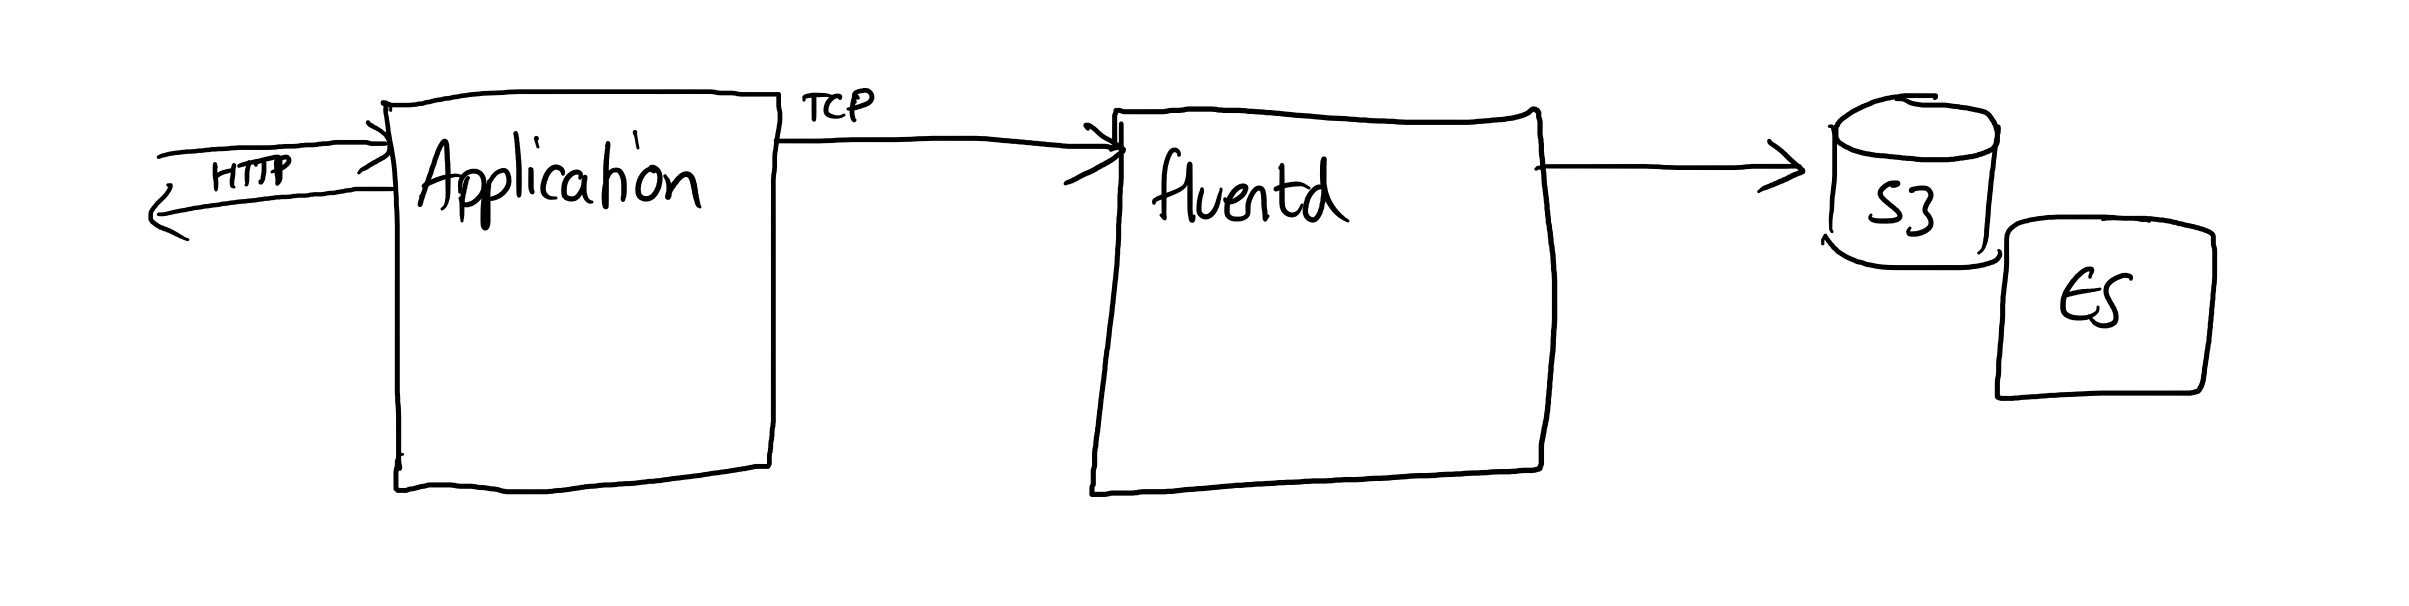 HTTP
Application
TCP
fluentd
S3
ES